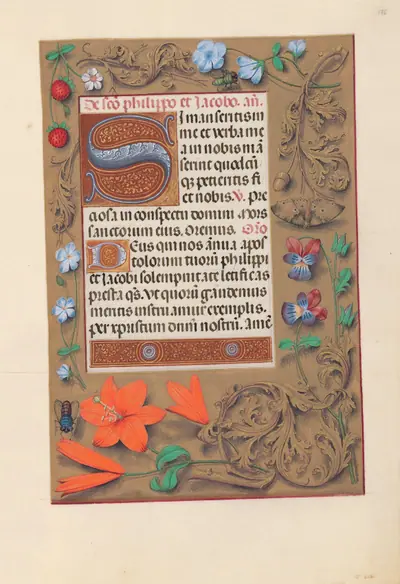 De scō philippo et Jacobo. añ.
Si manseritis in
me et verba me
a in nobis mā
serint quodcū
qȝ petieritis fi
et nobis. V. pre
ciosa in conspectu domini. Mors
sanctorum eius. Oremus. Orō
Deus qui nos annua apos
tolorum tuorū philippi
et Jacobi solempnitate letificas
presta qs. Ut quorū gaudemus
meritis instruamur exemplis.
per xpristum dnm̄ nostrū. amē